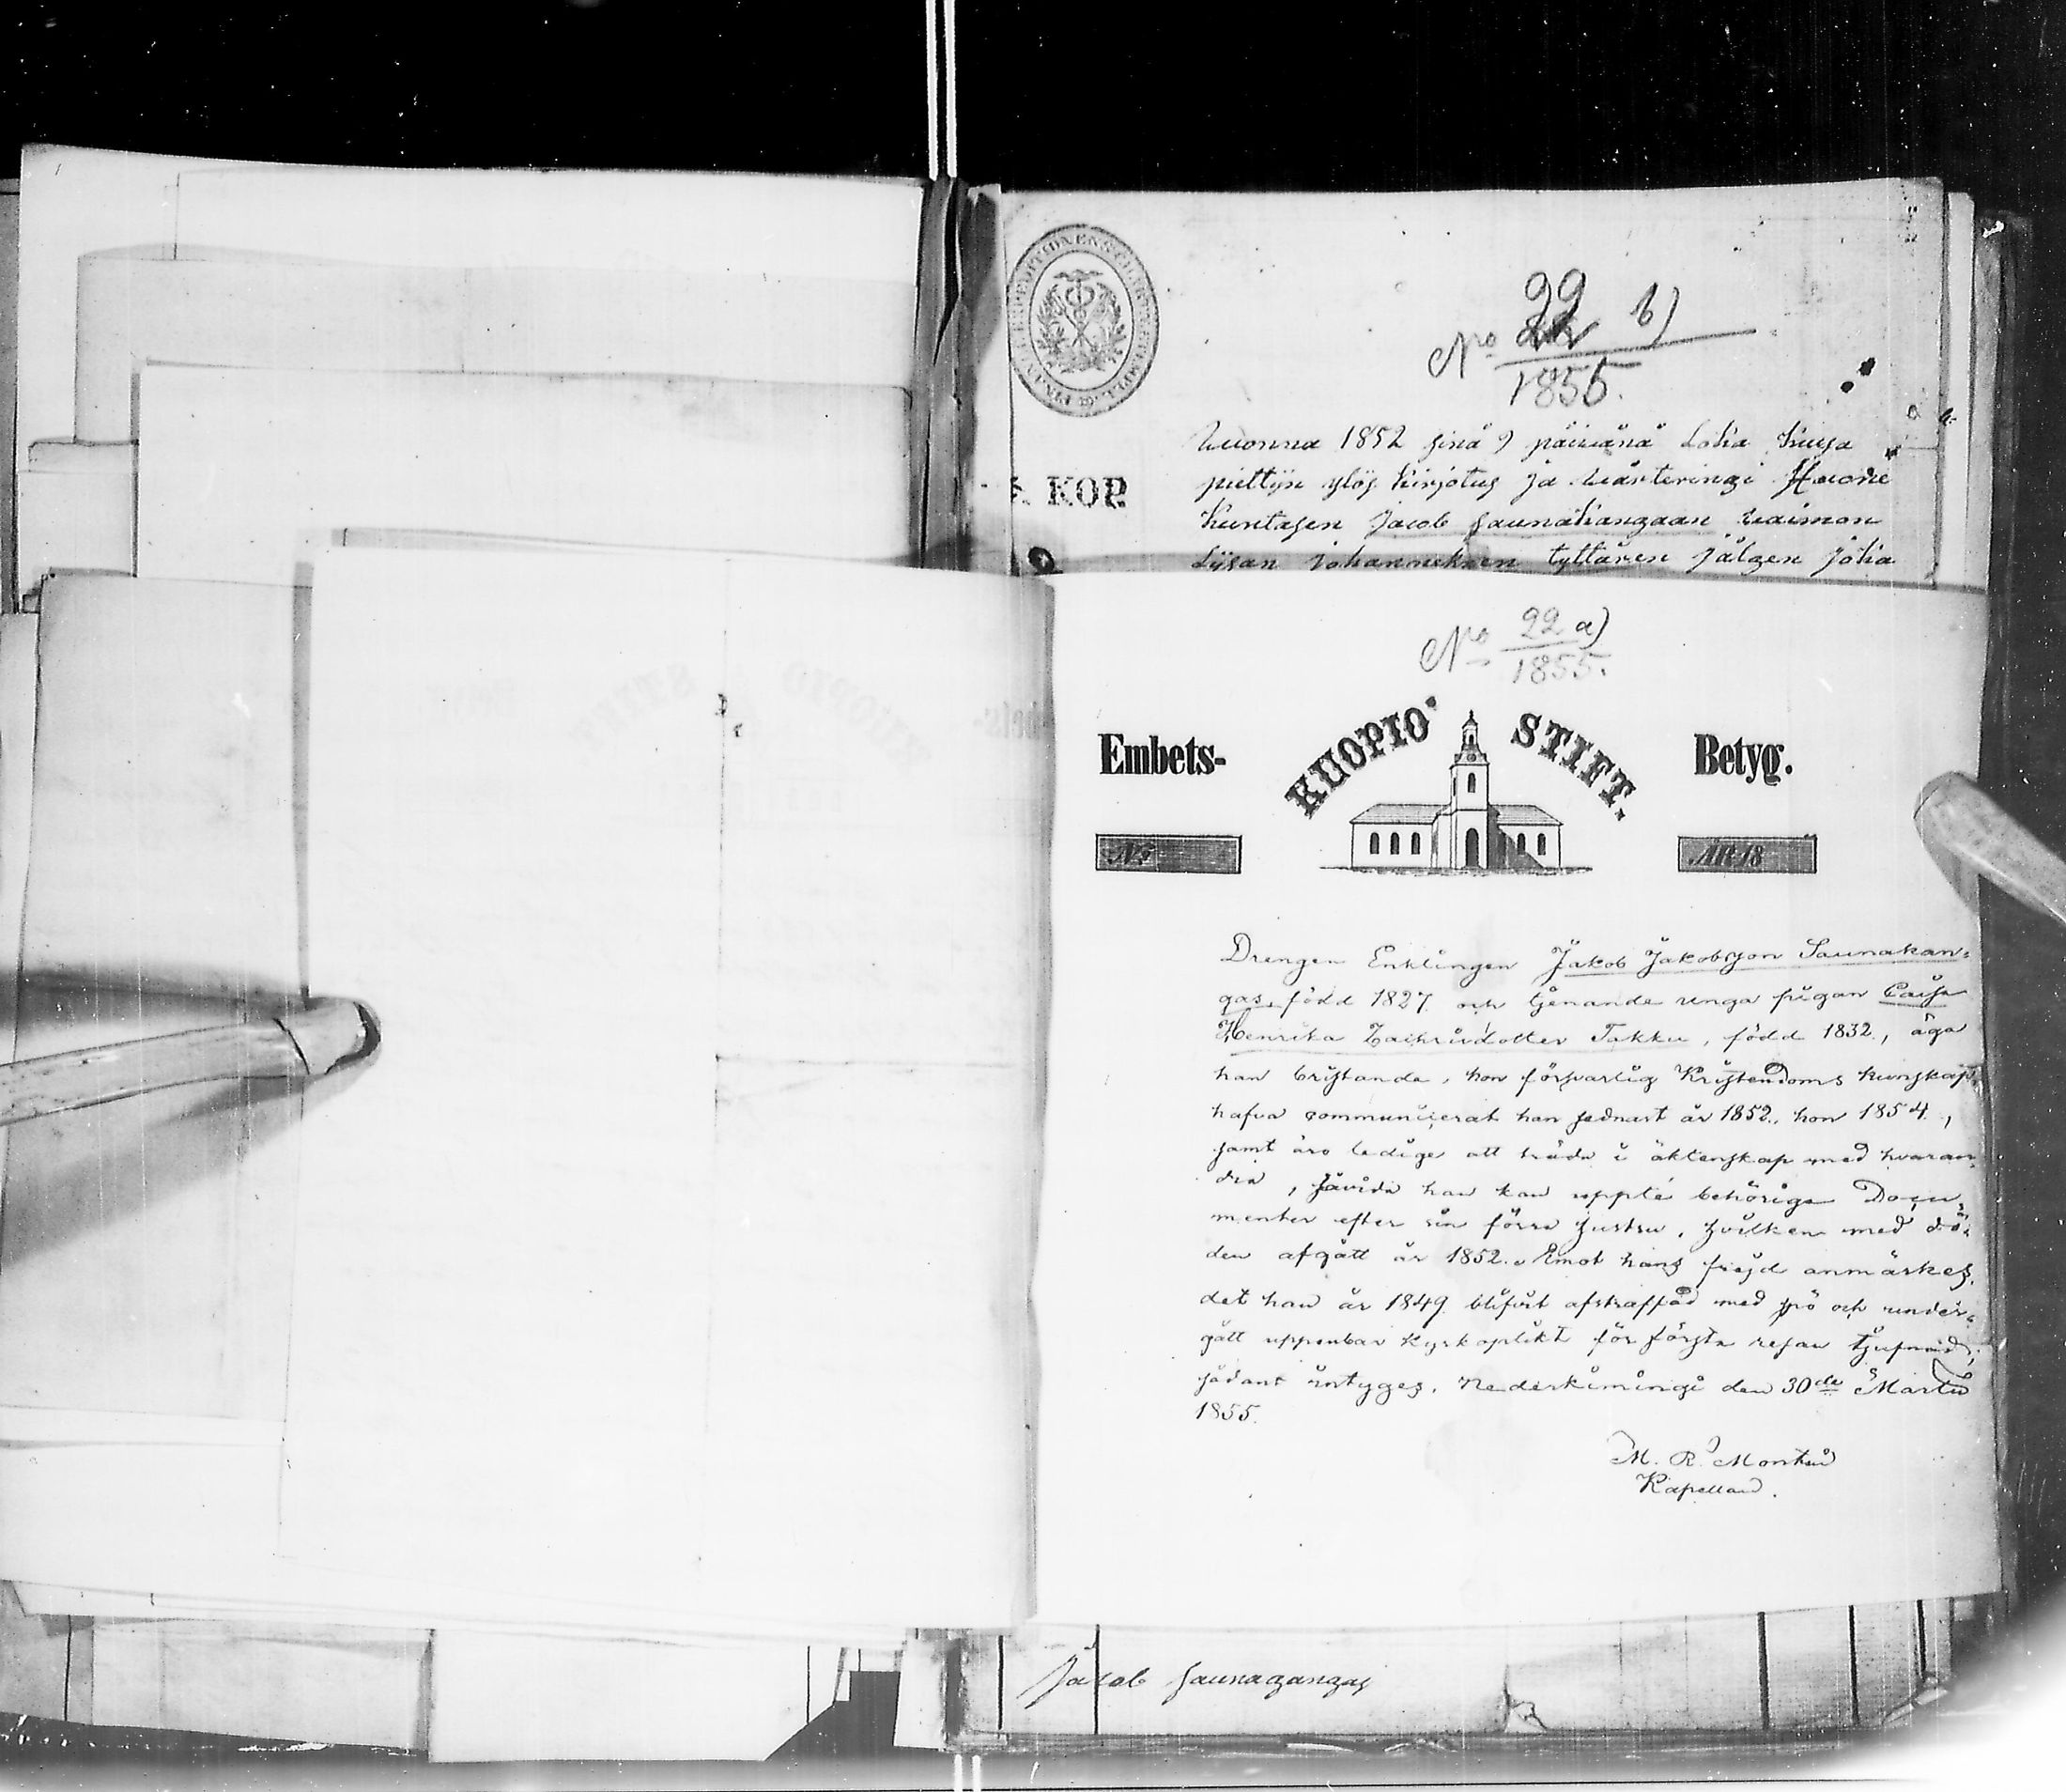 No 22 b)
1855.
Wuonna 1852 sinä 9 päiwänä Loka kuusa
pidettijn ylös kirjotus ja wärteringi Huone
kuntasen Jacob Saunakangaan waimon
Lijsan Johanneksen tyttären jälgen joka
KOP.
No 22 a)
1855.
Embets- KUOPIO STIFT. Betyg.
No ÅR 18
Drengen Enklingen Jakob Jakobsson Saunakan-
gas, född 1827 och tjenande unga pigan Caisa
Henrika Zachrisdotter Takku, född 1832, äga
han bristande, hon försvarlig Kristendoms kunskap,
hafva communicerat han sednast år 1852, hon 1854,
samt äro ledige att träda i äktenskap med hvaran-
dra, såvida han kan uppte behöriga Docu-
menter efter sin förra hustru, hvilken med dö-
den afgått år 1852. Emot hans frejd anmärkes,
det han år 1849 blifvit afstraffad med spö och under-
gått uppenbar kyrkoplikt för första resan tjufnad;
sådant intygas. Nederkiminge den 30de Martii
1855.
M. R. Montin
Kapellan.
Jacob Saunagangas